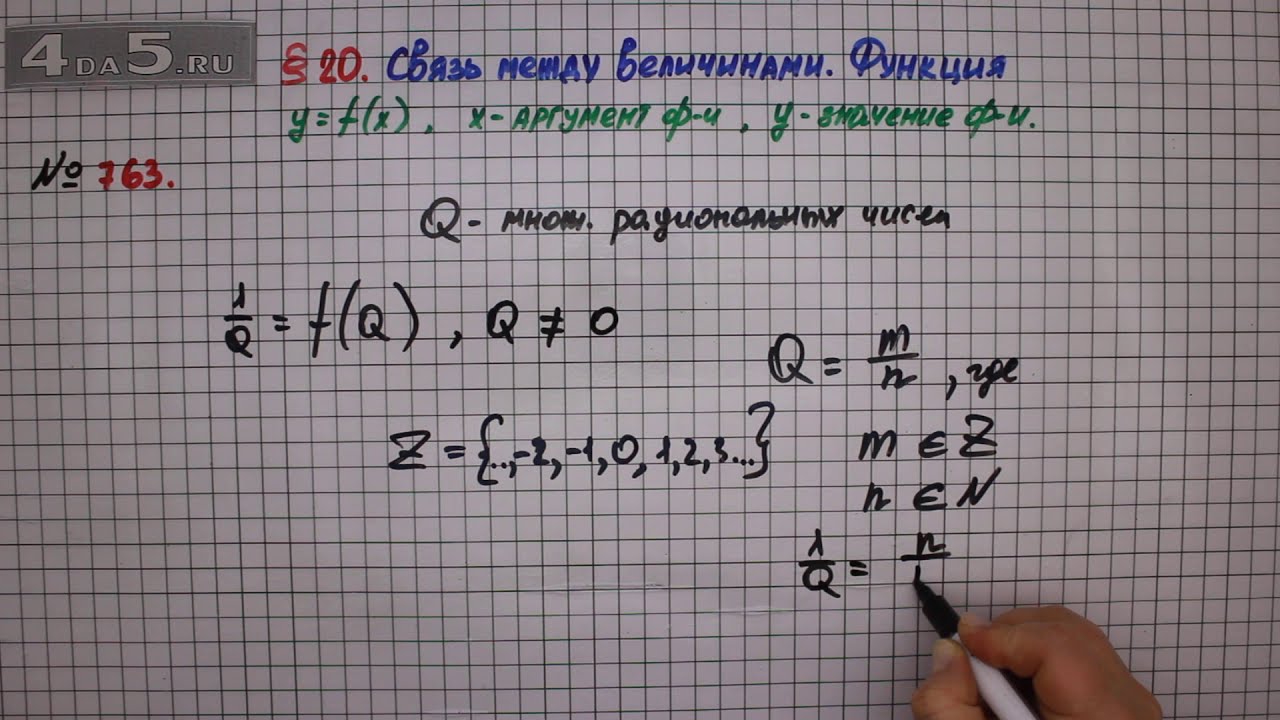 4DA5.RU
§ 20. Связь между величинами. Функция
y = f(x), x - аргумент ф-и, y - значение ф-и.
№ 763.
Q - множ. рациональных чисел
1/Q = f(Q), Q ≠ 0
Q = m/n, где
Z = {..,-2,-1,0,1,2,3...}
m ∈ Z
n ∈ N
1/Q = n/